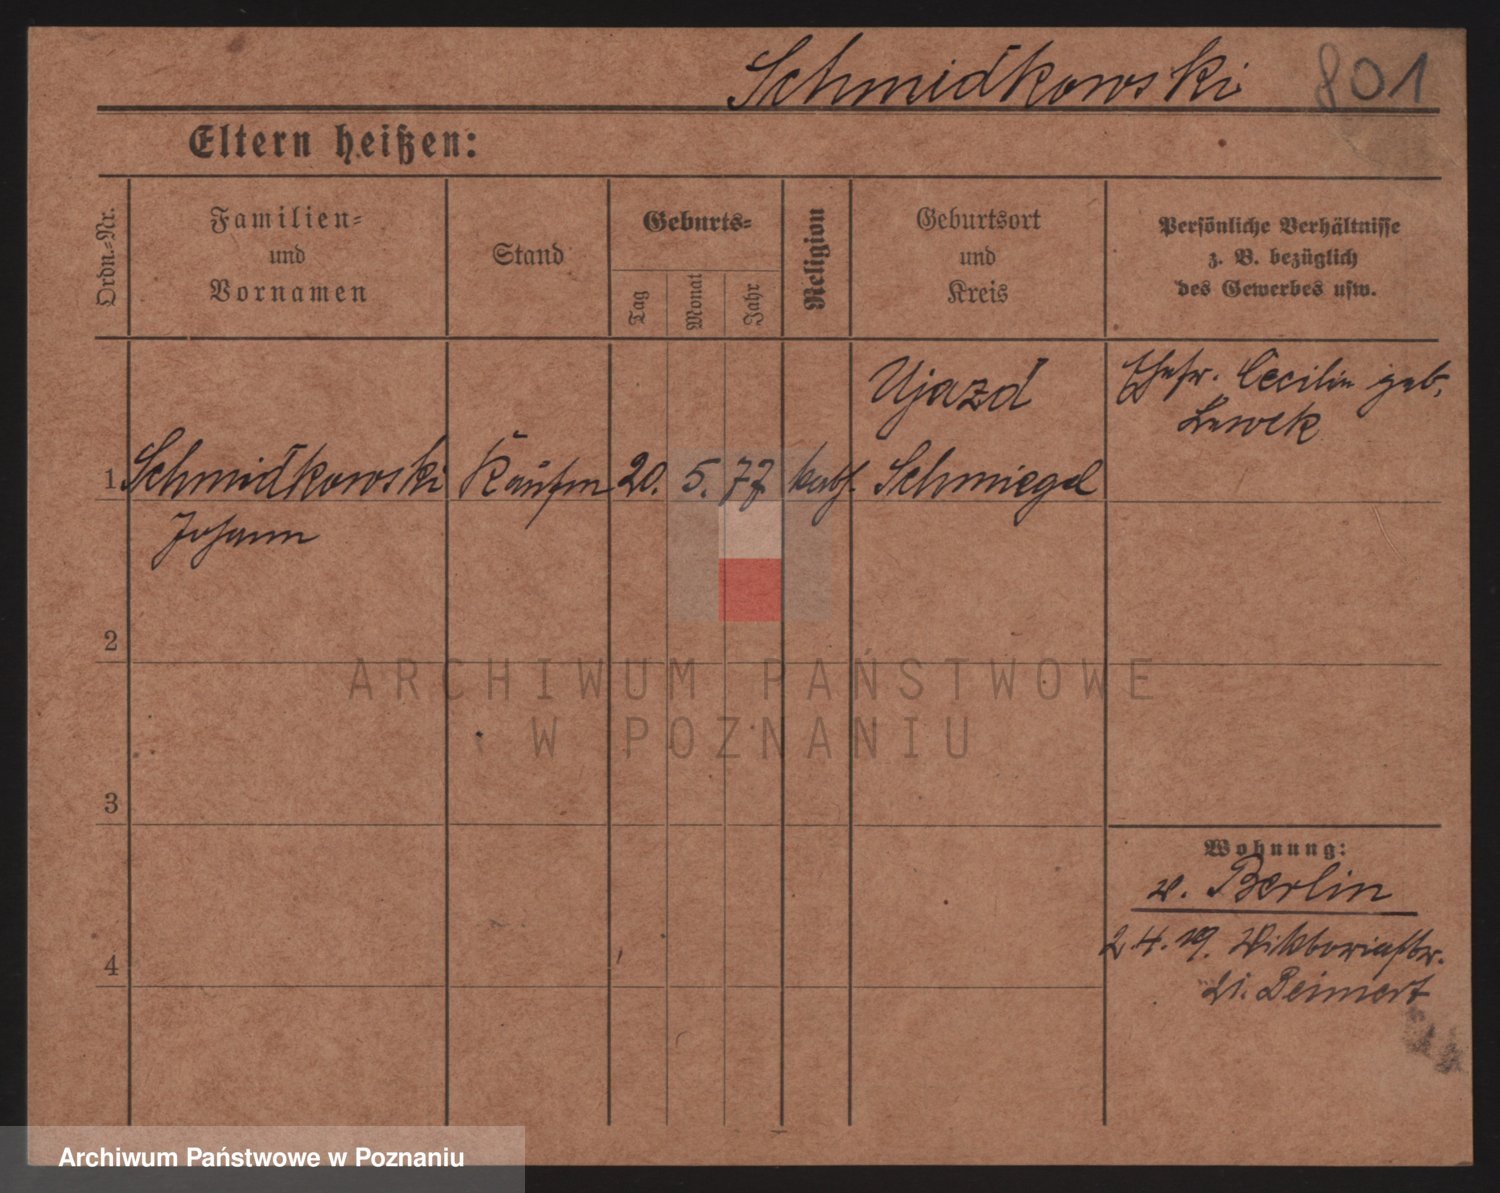 Schmidkowski 801
Eltern heißen:
Ordn.-Nr.
Familien-
und
Vornamen
Stand
Geburts-
Tag
Monat
Jahr
Religion
Geburtsort
und
Kreis
Persönliche Verhältnisse
z. B. bezüglich
des Gewerbes usw.
Ujazd
Ehefr. Cecilia geb.
1 Schmidkowski Kaufm 20. 5. 77 kath. Schmiegel
Johann
2
3
4
Wohnung:
v. Berlin
2.4.19. Viktoriastr.
21.
ARCHIWUM PAŃSTWOWE
W POZNANIU
Archiwum Państwowe w Poznaniu